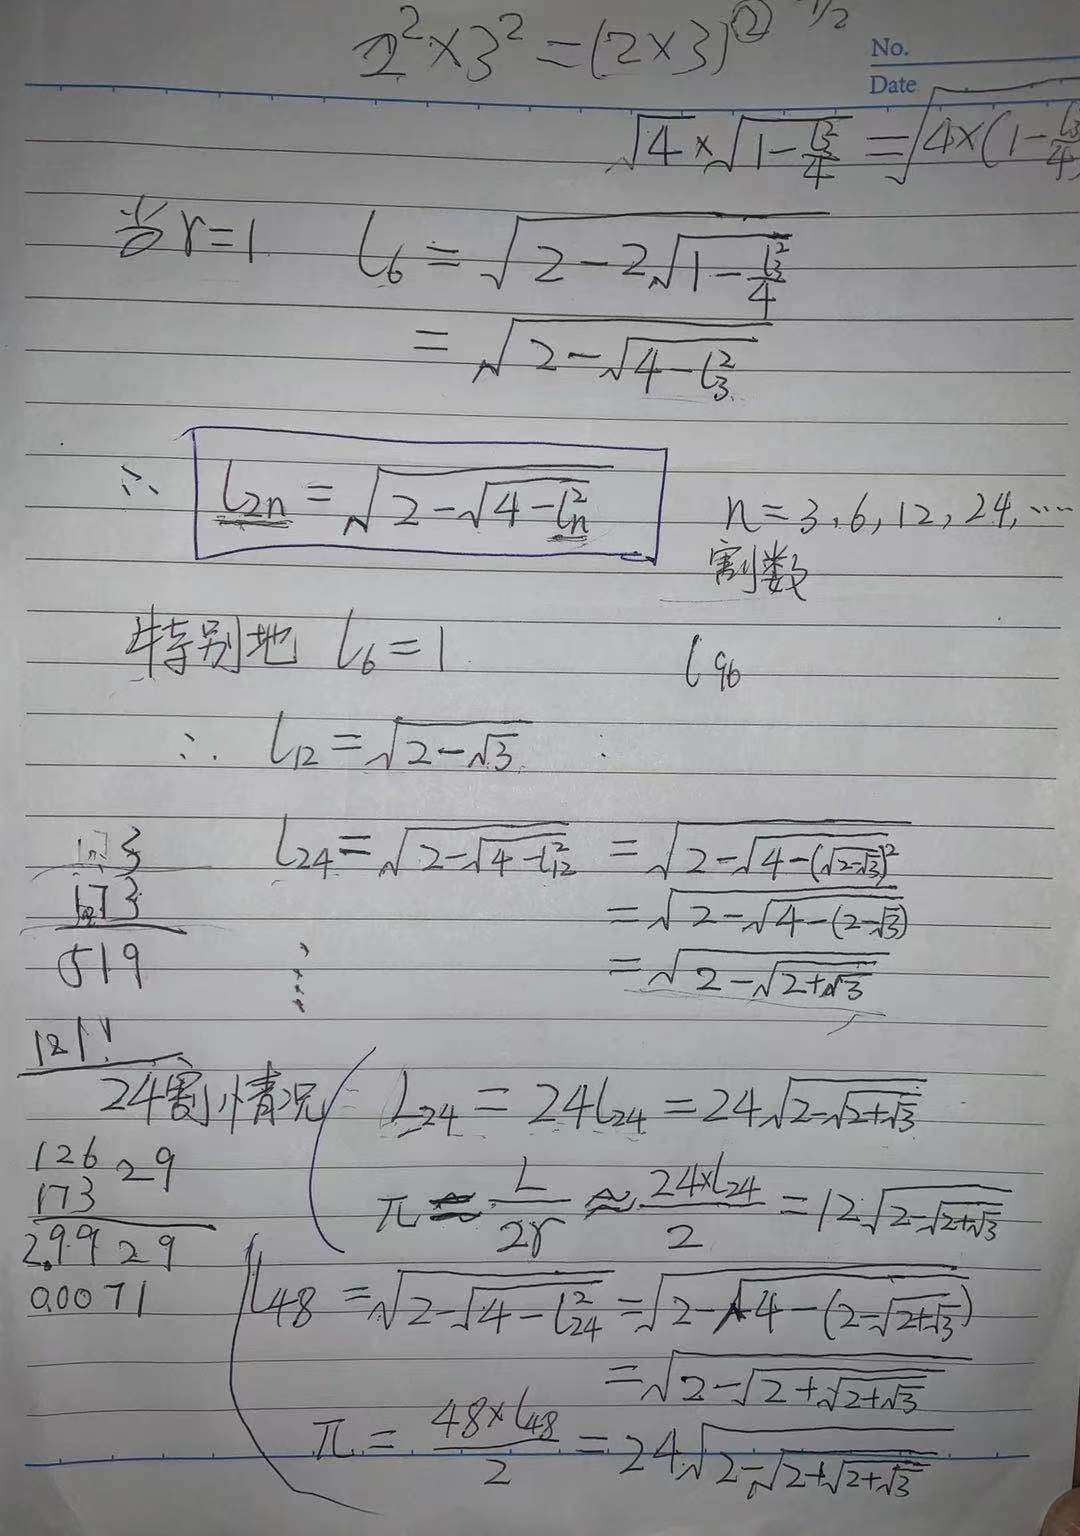 2²×3²=(2×3)② 1/2
No.
Date
√4×√(1-l₃²/4)=√(4×(1-l₃²/4)
当r=1 l₆=√(2-2√(1-l₃²/4))
=√(2-√(4-l₃²))
∴ l₂ₙ=√(2-√(4-lₙ²)) n=3,6,12,24,……
割数
特别地 l₆=1 l₉₆
∴ l₁₂=√(2-√3)
l₂₄=√(2-√(4-l₁₂²))=√(2-√(4-(√(2-√3))²))
1.73
=√(2-√(4-(2-√3)))
519
=√(2-√(2+√3))
⋮
24割情况 L₂₄=24l₂₄=24√(2-√(2+√3))
12629
173
π≈L/2r≈24×l₂₄/2=12√(2-√(2+√3))
2.9929
0.0071
l₄₈=√(2-√(4-l₂₄²))=√(2-√(4-(2-√(2+√3))))
=√(2-√(2+√(2+√3)))
π=48×l₄₈/2=24√(2-√(2+√(2+√3)))